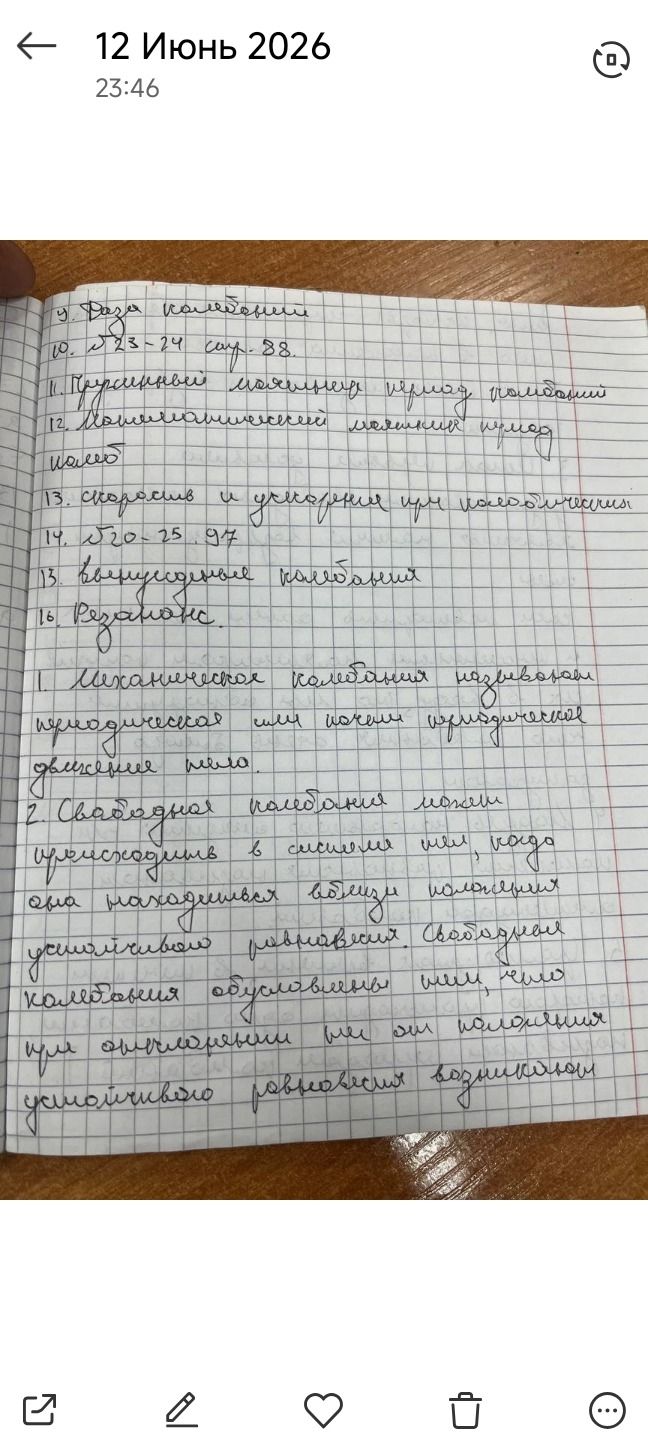 12 Июнь 2026
23:46
9. Фаза колебаний
10. №23-24 стр. 88.
11. Пружинный маятник период колебаний
12. Математический маятник период
колеб
13. скорость и ускорения при
14. №20-25. 97
15. Вынужденные колебания
16. Резананс.
1. Механическое колебания называют
периодическое или почти периодическое
движения тела.
2. Свабодная колебания может
происходить в системе тел, когда
она находиться вблизи положения
устойчивого равновесия. Свабодные
колебания обусловлены тем, что
при отклонении тел от положения
устойчивого равновесия возникают